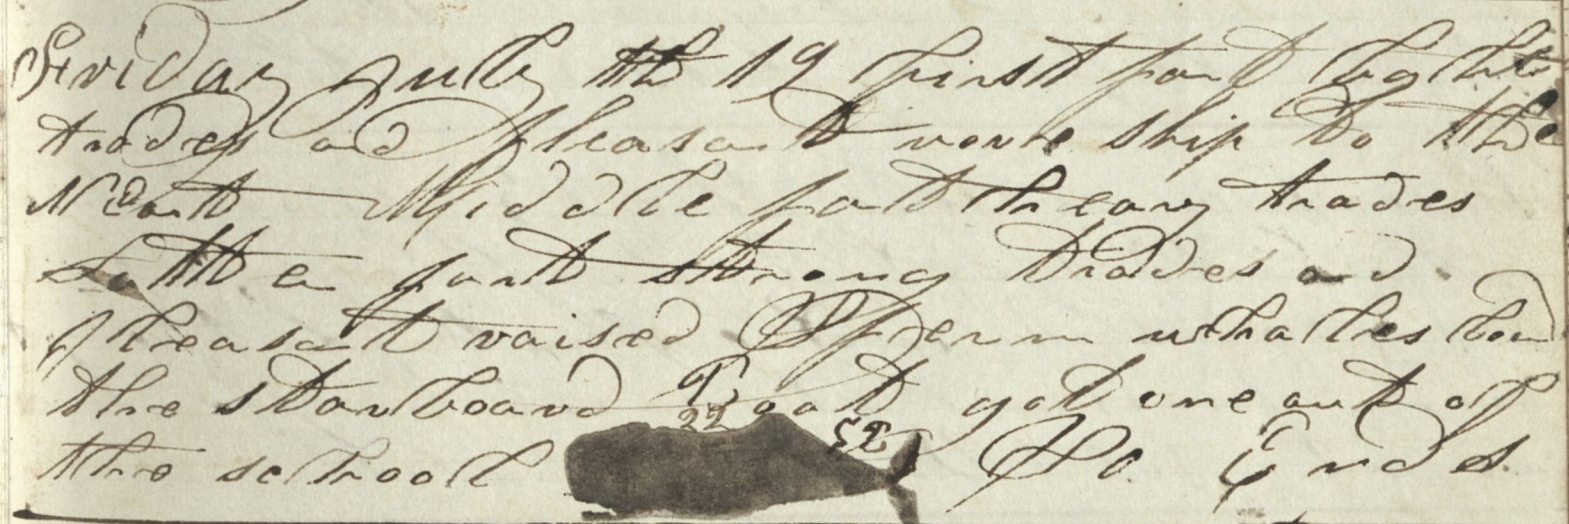 Friday July th 19 first part light
trades and pleasant wore ship to the
N East Middle part heavy trades
Latter part strong trades and
pleasant raised Sperm whales
the starboard Boat got one out of
the school So Ends
22